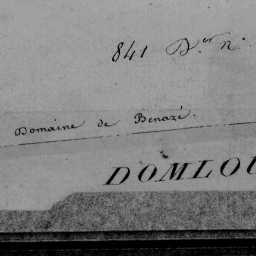 841 D.er n.
Domaine de Benazé.
DOMLOU